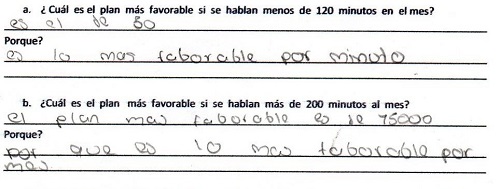 a. ¿ Cuál es el plan más favorable si se hablan menos de 120 minutos en el mes?
es el de 50
Porque?
es lo mas faborable por minuto
b. ¿Cuál es el plan más favorable si se hablan más de 200 minutos al mes?
el plan mas faborable es de 75000
Porque?
por que es lo mas faborable por
mes